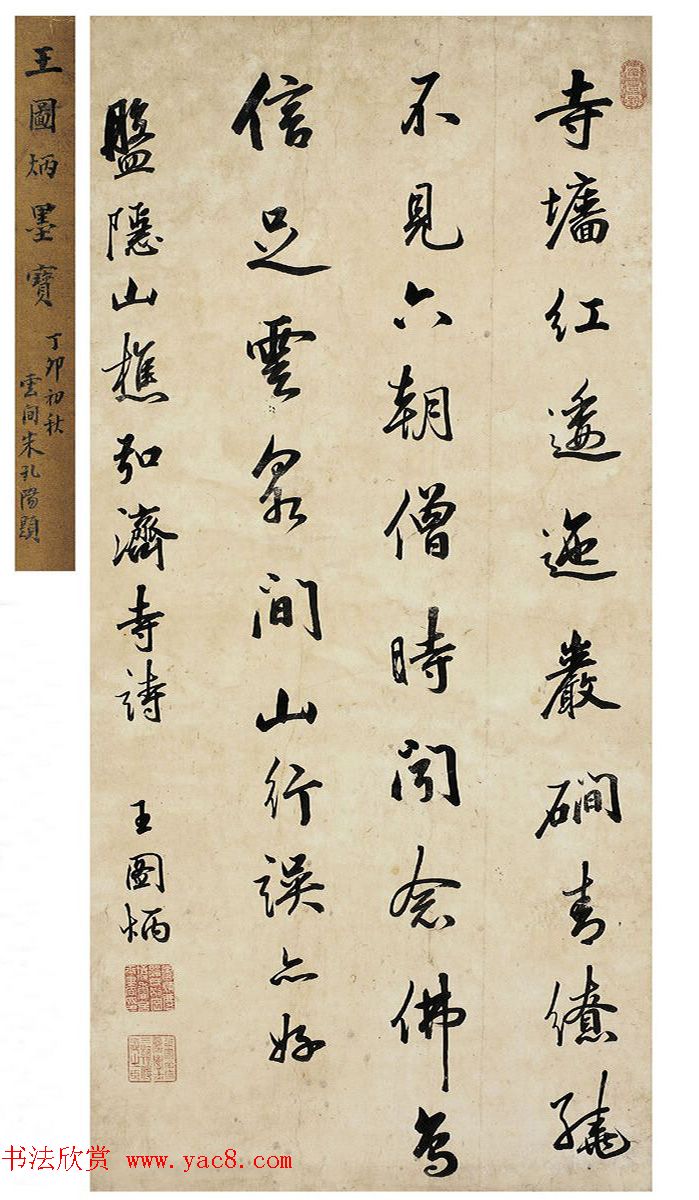 寺墻紅逶迤巖磵青繚繞
不見六朝僧時聞念佛鳥
信足雲泉間山行誤亦好
盤隱山樵弘濟寺詩 王圖炳
王圖炳墨寶
丁卯初秋
雲间朱孔陽題
书法欣赏 www.yac8.com